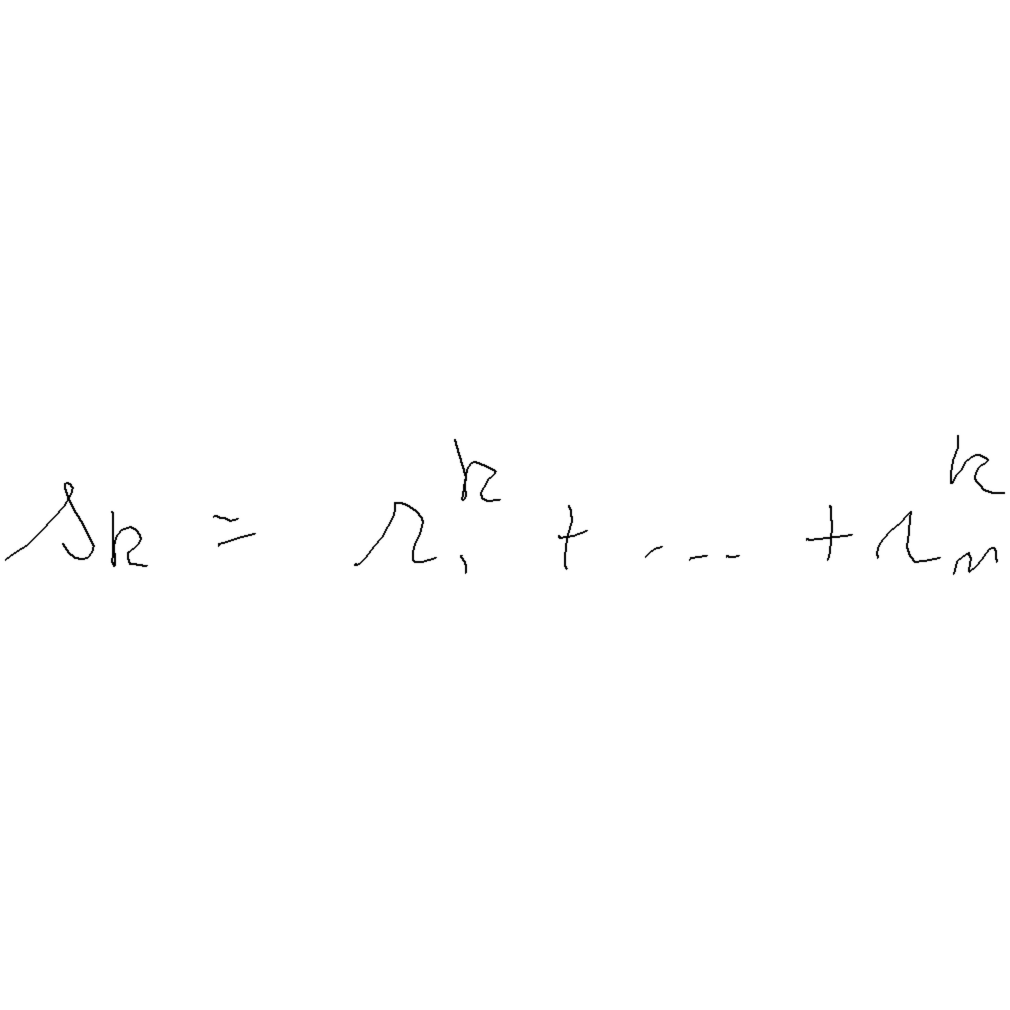 $s_k = r_1^k + \dots + r_n^k$